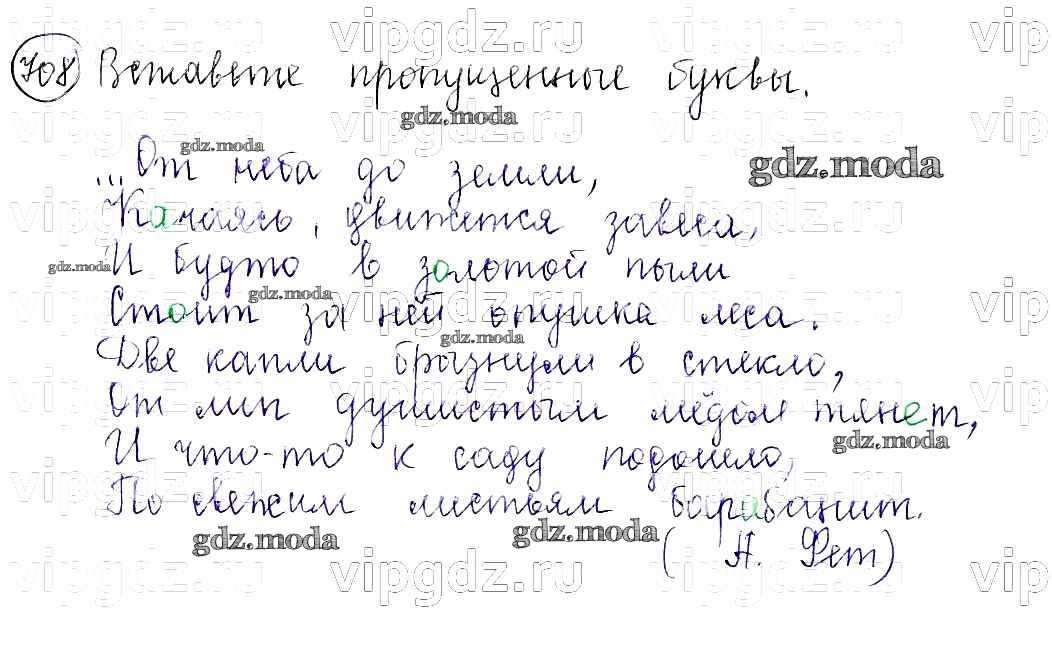 708 Вставьте пропущенные буквы.
...От неба до земли,
Качаясь, движется завеса,
И будто в золотой пыли
Стоит за ней опушка леса.
Две капли брызнули в стекло,
От лип душистым мёдом тянет,
И что-то к саду подошло,
По свежим листьям барабанит.
(А. Фет)
vipgdz.ru
gdz.moda